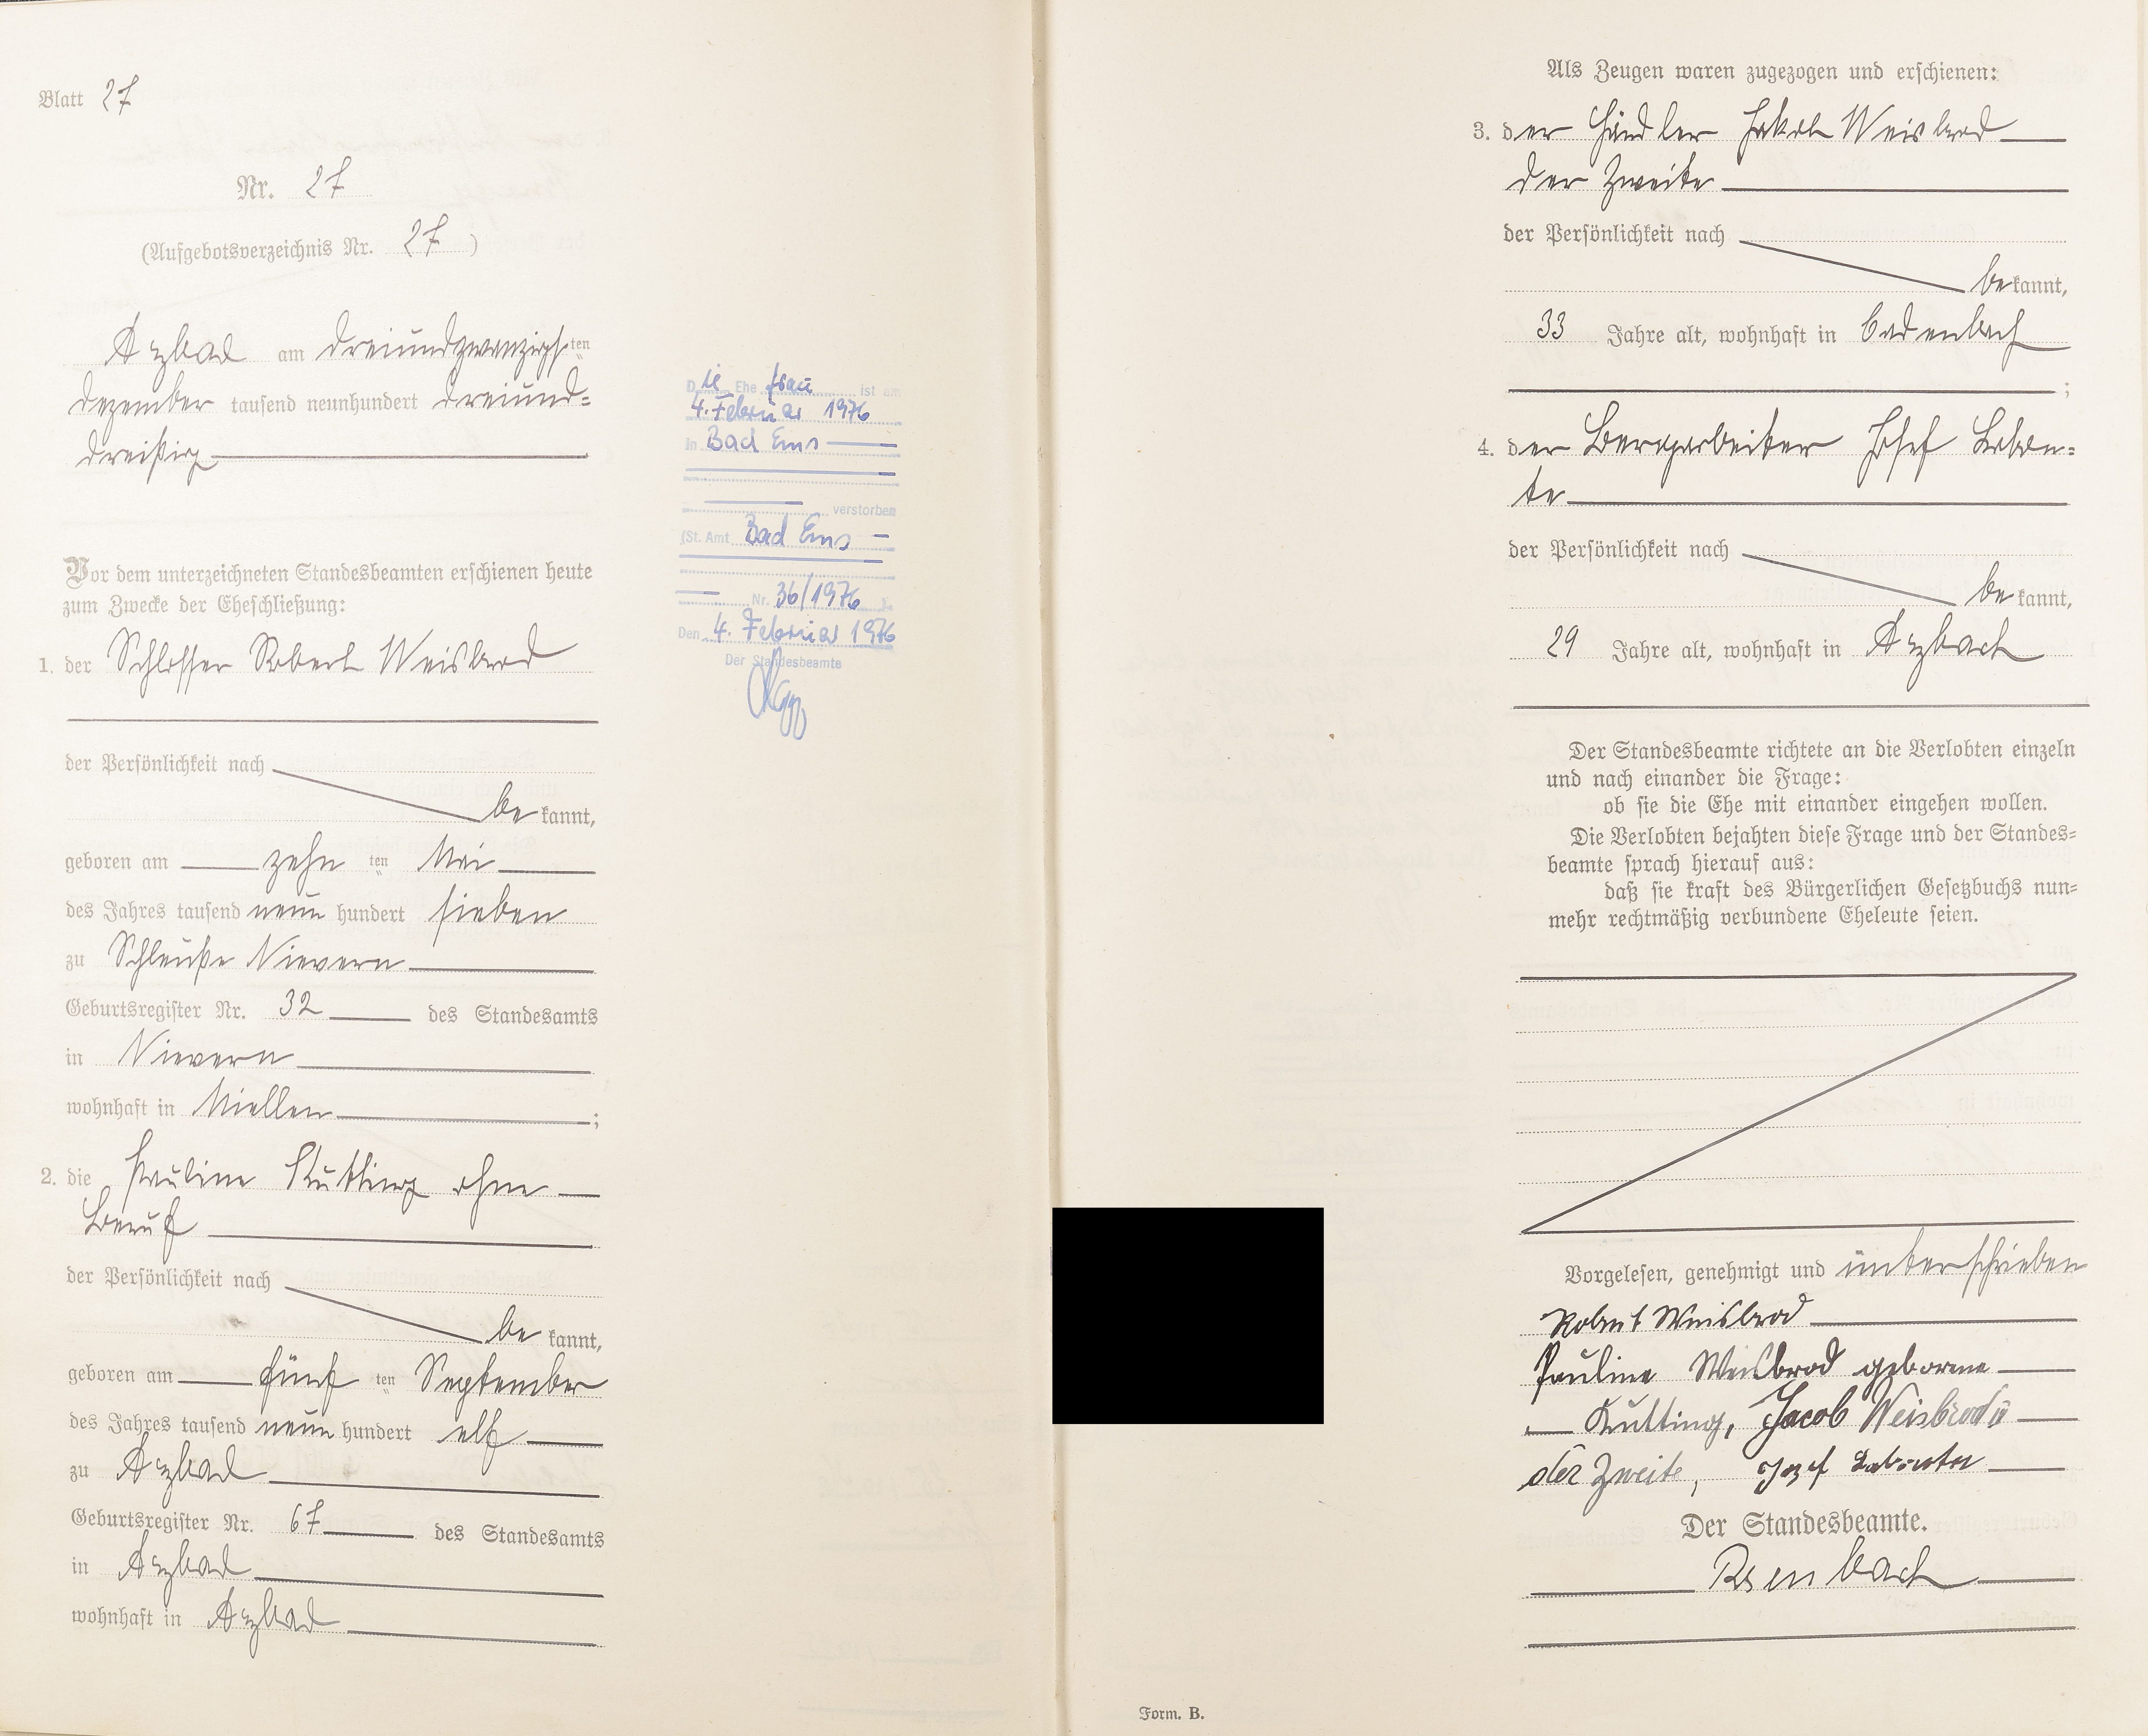 Blatt 27
Nr. 27
(Aufgebotsverzeichnis Nr. 27)
Arzbach am dreiundzwanzigsten
Dezember tausend neunhundert dreiund=
dreißig
Vor dem unterzeichneten Standesbeamten erschienen heute
zum Zwecke der Eheschließung:
1. der Schlosser Robert Weisbrod
der Persönlichkeit nach
bekannt,
geboren am zehn ten Mai
des Jahres tausend neun hundert sieben
zu Schleuße Nievern
Geburtsregister Nr. 32 des Standesamts
in Nievern
wohnhaft in Miellen;
2. die Pauline Kutting ohne
Beruf
der Persönlichkeit nach
bekannt,
geboren am fünf ten September
des Jahres tausend neun hundert elf
zu Arzbach
Geburtsregister Nr. 67 des Standesamts
in Arzbach
wohnhaft in Arzbach
Die Ehefrau ist am
4. Februar 1976
in Bad Ems
verstorben
(St. Amt Bad Ems
Nr. 36/1976).
Den 4. Februar 1976
Der Standesbeamte
Als Zeugen waren zugezogen und erschienen:
3. der Händler Jakob Weisbrod
der Zweite
der Persönlichkeit nach
bekannt,
33 Jahre alt, wohnhaft in Cadenbach
;
4. der Bergarbeiter Josef Labon=
te
der Persönlichkeit nach
bekannt,
29 Jahre alt, wohnhaft in Arzbach
Der Standesbeamte richtete an die Verlobten einzeln
und nach einander die Frage:
ob sie die Ehe mit einander eingehen wollen.
Die Verlobten bejahten diese Frage und der Standes=
beamte sprach hierauf aus:
daß sie kraft des Bürgerlichen Gesetzbuchs nun=
mehr rechtmäßig verbundene Eheleute seien.
Vorgelesen, genehmigt und unterschrieben
Robert Weisbrod
Pauline Weisbrod geborene
Kutting, Jacob Weisbrod
der Zweite, Josef Labonte
Der Standesbeamte.
Form. B.